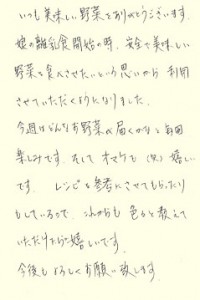 いつも美味しい野菜をありがとうございます。
娘の離乳食開始の時、安全で美味しい
野菜を食べさせたいという思いから 利用
させていただくようになりました。
今週はどんなお野菜が届くかなと毎回
楽しみです。そして オマケも (笑) 嬉しい
です。 レシピも参考にさせてもらったり
もしているので、これからも 色々と教えて
いただけたら嬉しいです。
今後もよろしくお願い致します。